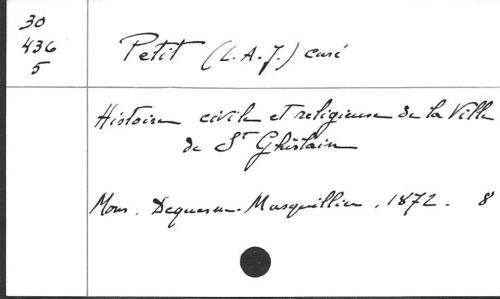 30
436
5
Petit (L.A.J.) curé
Histoire civile et religieuse de la Ville
de St Ghislain
Mons. Dequesne-Masquillier. 1872. 8°